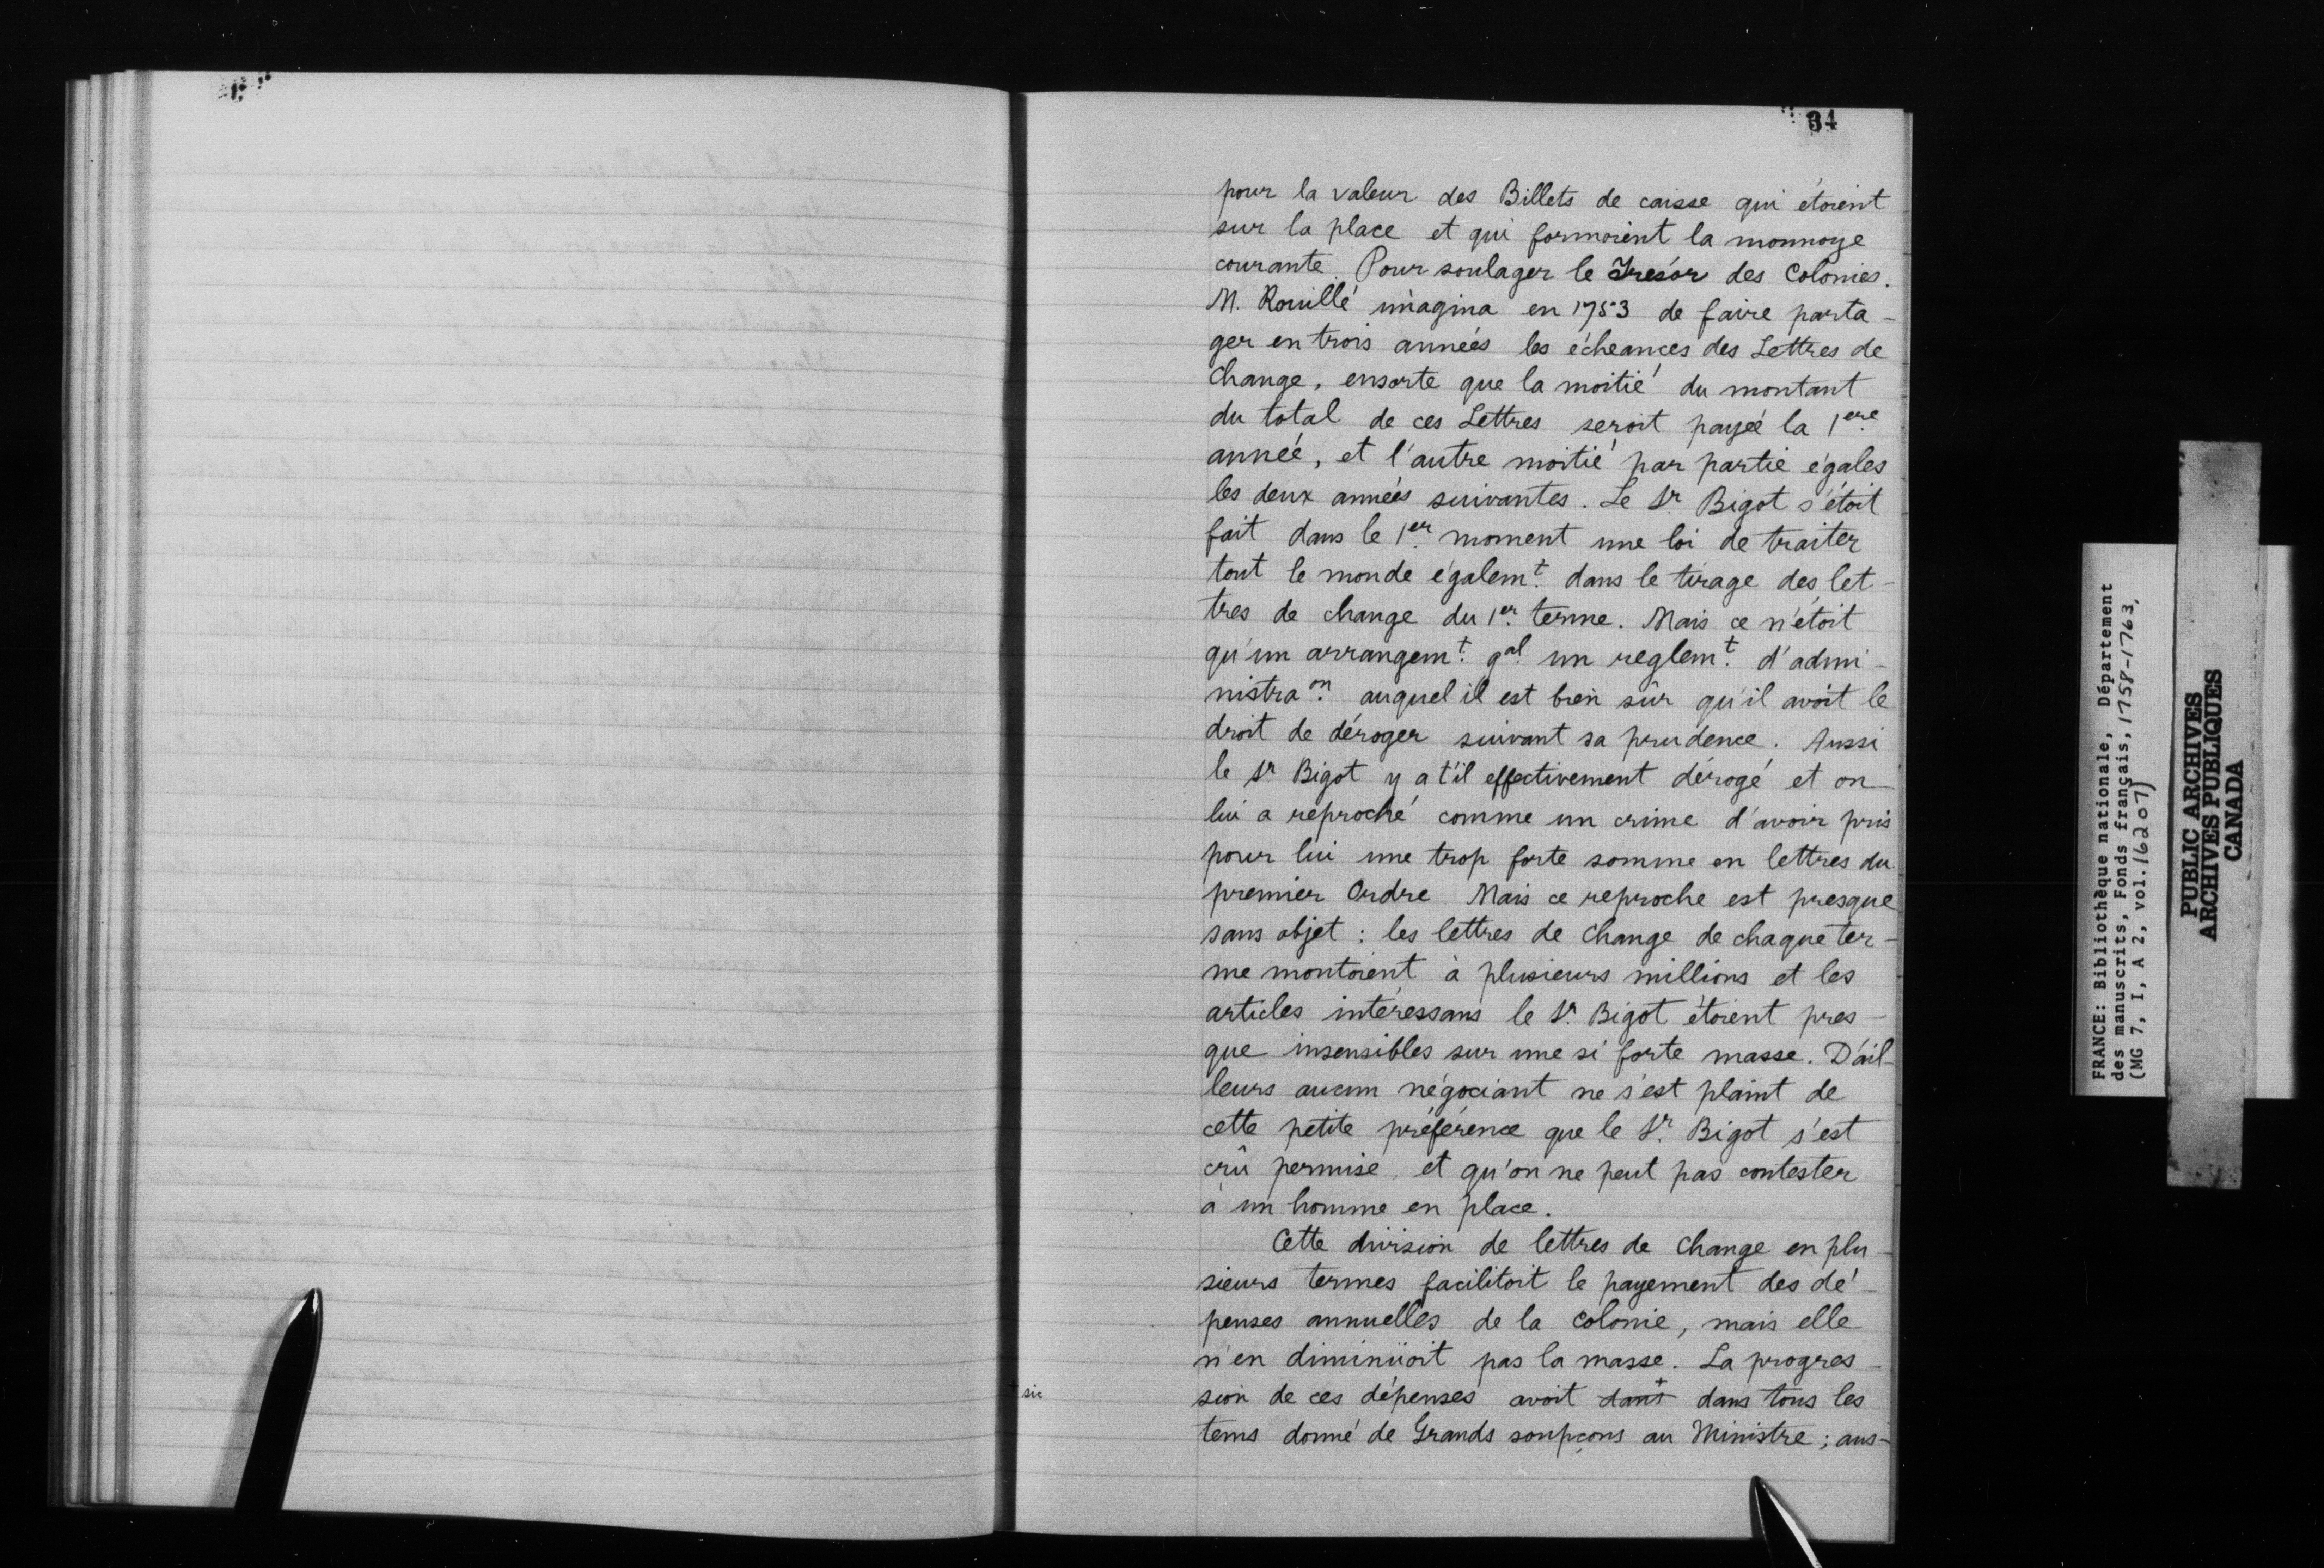 34
pour la valeur des Billets de caisse qui étoient
sur la place et qui formoient la monnoye
courante. Pour soulager le Tresor des Colonies.
M. Rouillé imagina en 1753 de faire parta-
ger en trois années les écheances des Lettres de
Change, ensorte que la moitié du montant
du total de ces Lettres seroit payée la 1ere
année, et l'autre moitié par partie égales
les deux années suivantes. Le Sr. Bigot s'étoit
fait dans le 1er. moment une loi de traiter
tout le monde égalemt. dans le tirage des let-
tres de change du 1er. terme. Mais ce n'étoit
qu'un arrangemt. gal. un reglemt. d'admi-
nistraon. auquel il est bien sûr qu'il avoit le
droit de déroger suivant sa prudence. Aussi
le Sr Bigot y a t'il effectivement dérogé et on
lui a reproché comme un crime d'avoir pris
pour lui une trop forte somme en lettres du
premier Ordre. Mais ce reproche est presque
sans objet : les lettres de change de chaque ter-
me montoient à plusieurs millions et les
articles intéressans le Sr. Bigot étoient pres-
que insensibles sur une si forte masse. D'ail-
leurs aucun négociant ne s'est plaint de
cette petite préférence que le Sr. Bigot s'est
crû permise, et qu'on ne peut pas contester
à un homme en place.
Cette division de lettres de change en plu-
sieurs termes facilitoit le payement des dé-
penses annuelles de la colonie, mais elle
n'en diminüoit pas la masse. La progres-
+ sic
sion de ces dépenses avoit dant + dans tous les
tems donné de Grands soupçons au Ministre ; aus-
FRANCE: Bibliothèque nationale, Département
des manuscrits, Fonds français, 1758-1763,
(MG 7, I, A 2, vol. 16207)
PUBLIC ARCHIVES
ARCHIVES PUBLIQUES
CANADA